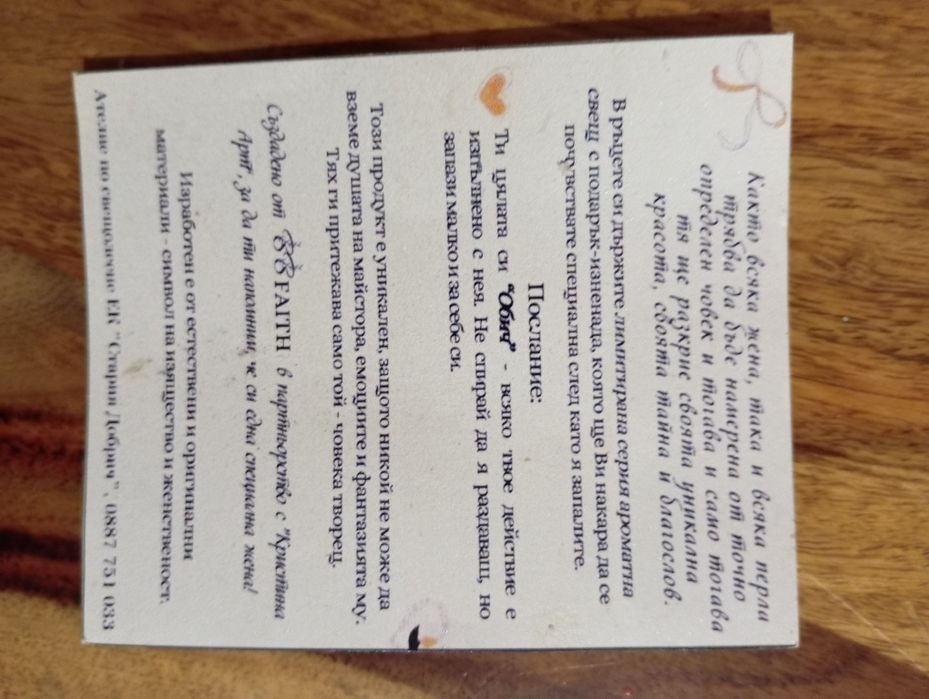 Както всяка жена, така и всяка перла
трябва да бъде намерена от точно
определен човек и тогава и само тогава
тя ще разкрие своята уникална
красота, своята тайна и благослов.
В ръцете си държите лимитирана серия ароматна
свещ с подарък-изненада, която ще Ви накара да се
почувствате специална след като я запалите.
Послание:
Ти цялата си "Обич" - всяко твое действие е
изпълнено с нея. Не спирай да я раздаваш, но
запази малко и за себе си.
Този продукт е уникален, защото никой не може да
вземе душата на майстора, емоциите и фантазията му.
Тях ги притежава само той - човека творец.
Създадено от FAITH в партньорство с "Кристина
Арт", за да ти напомни, че си една специална жена!
Изработен е от естествени и оригинални
материали - символ на изящество и женственост.
Ателие по свещолеене ЕК "Стария Добрич", 0887 751 033